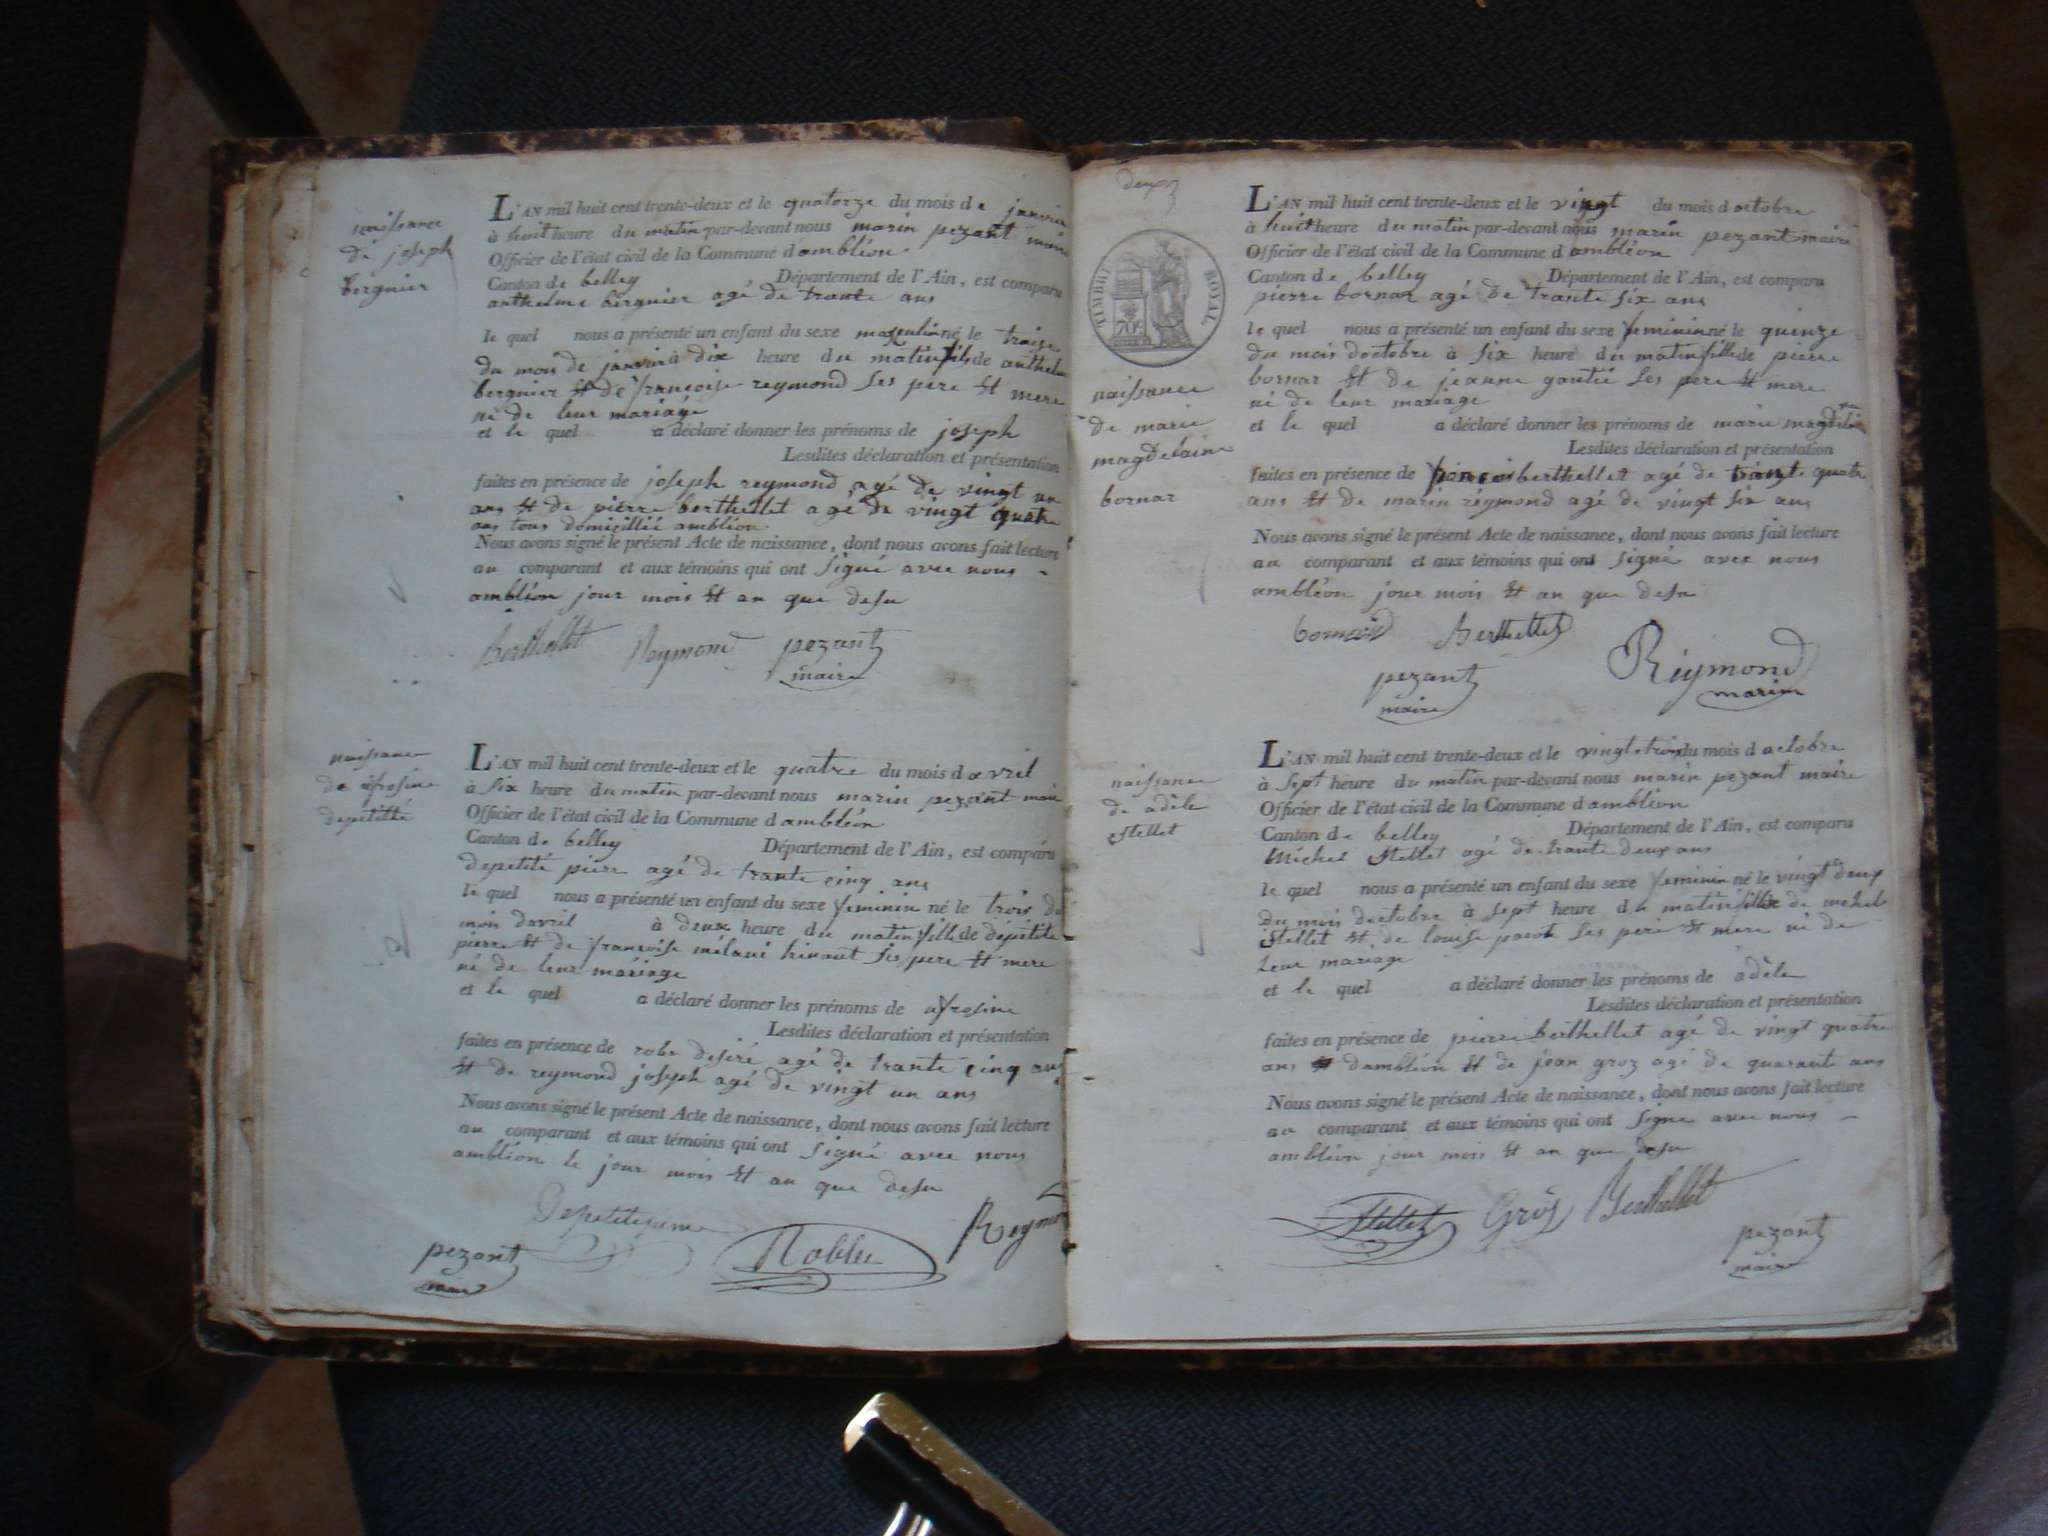 naissance
de joseph
bergnier
L'AN mil huit cent trente-deux et le quatorze du mois de janvier
à huit heure du matin par-devant nous marin pezant maire
Officier de l'état civil de la Commune d'ambléon
Canton de belley Département de l'Ain, est comparu
anthelme bergnier agé de trante ans
le quel nous a présenté un enfant du sexe masculin né le traize
du mois de janvier à dix heure du matin fils de anthelme
bergnier et de françoise reymond ses père et mere
né de leur mariage
et le quel a déclaré donner les prénoms de joseph
Lesdites déclaration et présentation
faites en présence de joseph reymond agé de vingt un
ans et de pierre berthellet agé de vingt quatre
ans tous domicillié ambléon
Nous avons signé le présent Acte de naissance, dont nous avons fait lecture
au comparant et aux témoins qui ont signé avec nous
ambléon jour mois et an que desu
Berthellet Reymond pezant
maire
naissance
de afrosine
depetitté
L'AN mil huit cent trente-deux et le quatre du mois d avril
à six heure du matin par-devant nous marin pezant maire
Officier de l'état civil de la Commune d'ambléon
Canton de belley Département de l'Ain, est comparu
depetité pierre agé de trante cinq ans
le quel nous a présenté un enfant du sexe feminin né le trois du
mois davril à deux heure du matin fille de depetite
pierre et de françoise mélani ses pere et mere
né de leur mariage
et le quel a déclaré donner les prénoms de afrosine
Lesdites déclaration et présentation
faites en présence de desiré agé de trante cinq ans
et de reymond joseph agé de vingt un ans
Nous avons signé le présent Acte de naissance, dont nous avons fait lecture
au comparant et aux témoins qui ont signé avec nous
ambléon le jour mois et an que desu
Reymond
pezant
maire
TIMBRE ROYAL
naissance
de marie
magdelaine
bornar
L'AN mil huit cent trente-deux et le vingt du mois d octobre
à huit heure du matin par-devant nous marin pezant maire
Officier de l'état civil de la Commune d ambléon
Canton de belley Département de l'Ain, est comparu
pierre bornar agé de trante six ans
le quel nous a présenté un enfant du sexe feminin né le quinze
du mois doctobre à six heure du matin fille de pierre
bornar et de jeanne gantié ses pere et mere
né de leur mariage
et le quel a déclaré donner les prénoms de marie magdelaine
Lesdites déclaration et présentation
faites en présence de berthellet agé de trante quatre
ans et de marin réymond agé de vingt six ans
Nous avons signé le présent Acte de naissance, dont nous avons fait lecture
au comparant et aux témoins qui ont signé avec nous
ambléon jour mois et an que desu
Berthellet
Reymond
marin
pezant
maire
naissance
de adèle
stellet
L'AN mil huit cent trente-deux et le vingt et trois du mois d octobre
à sept heure du matin par-devant nous marin pezant maire
Officier de l'état civil de la Commune d ambléon
Canton de belley Département de l'Ain, est comparu
Michel stellet agé de trante deux ans
le quel nous a présenté un enfant du sexe feminin né le vingt deux
du mois doctobre à sept heure du matin fille de michel
stellet et de louise ses pere et mere né de
leur mariage
et le quel a déclaré donner les prénoms de adèle
Lesdites déclaration et présentation
faites en présence de pierre berthellet agé de vingt quatre
ans dambléon et de jean groz agé de quarante ans
Nous avons signé le présent Acte de naissance, dont nous avons fait lecture
au comparant et aux témoins qui ont signé avec nous
ambléon jour mois et an que desu
Stellet Gros Berthellet
pezant
maire